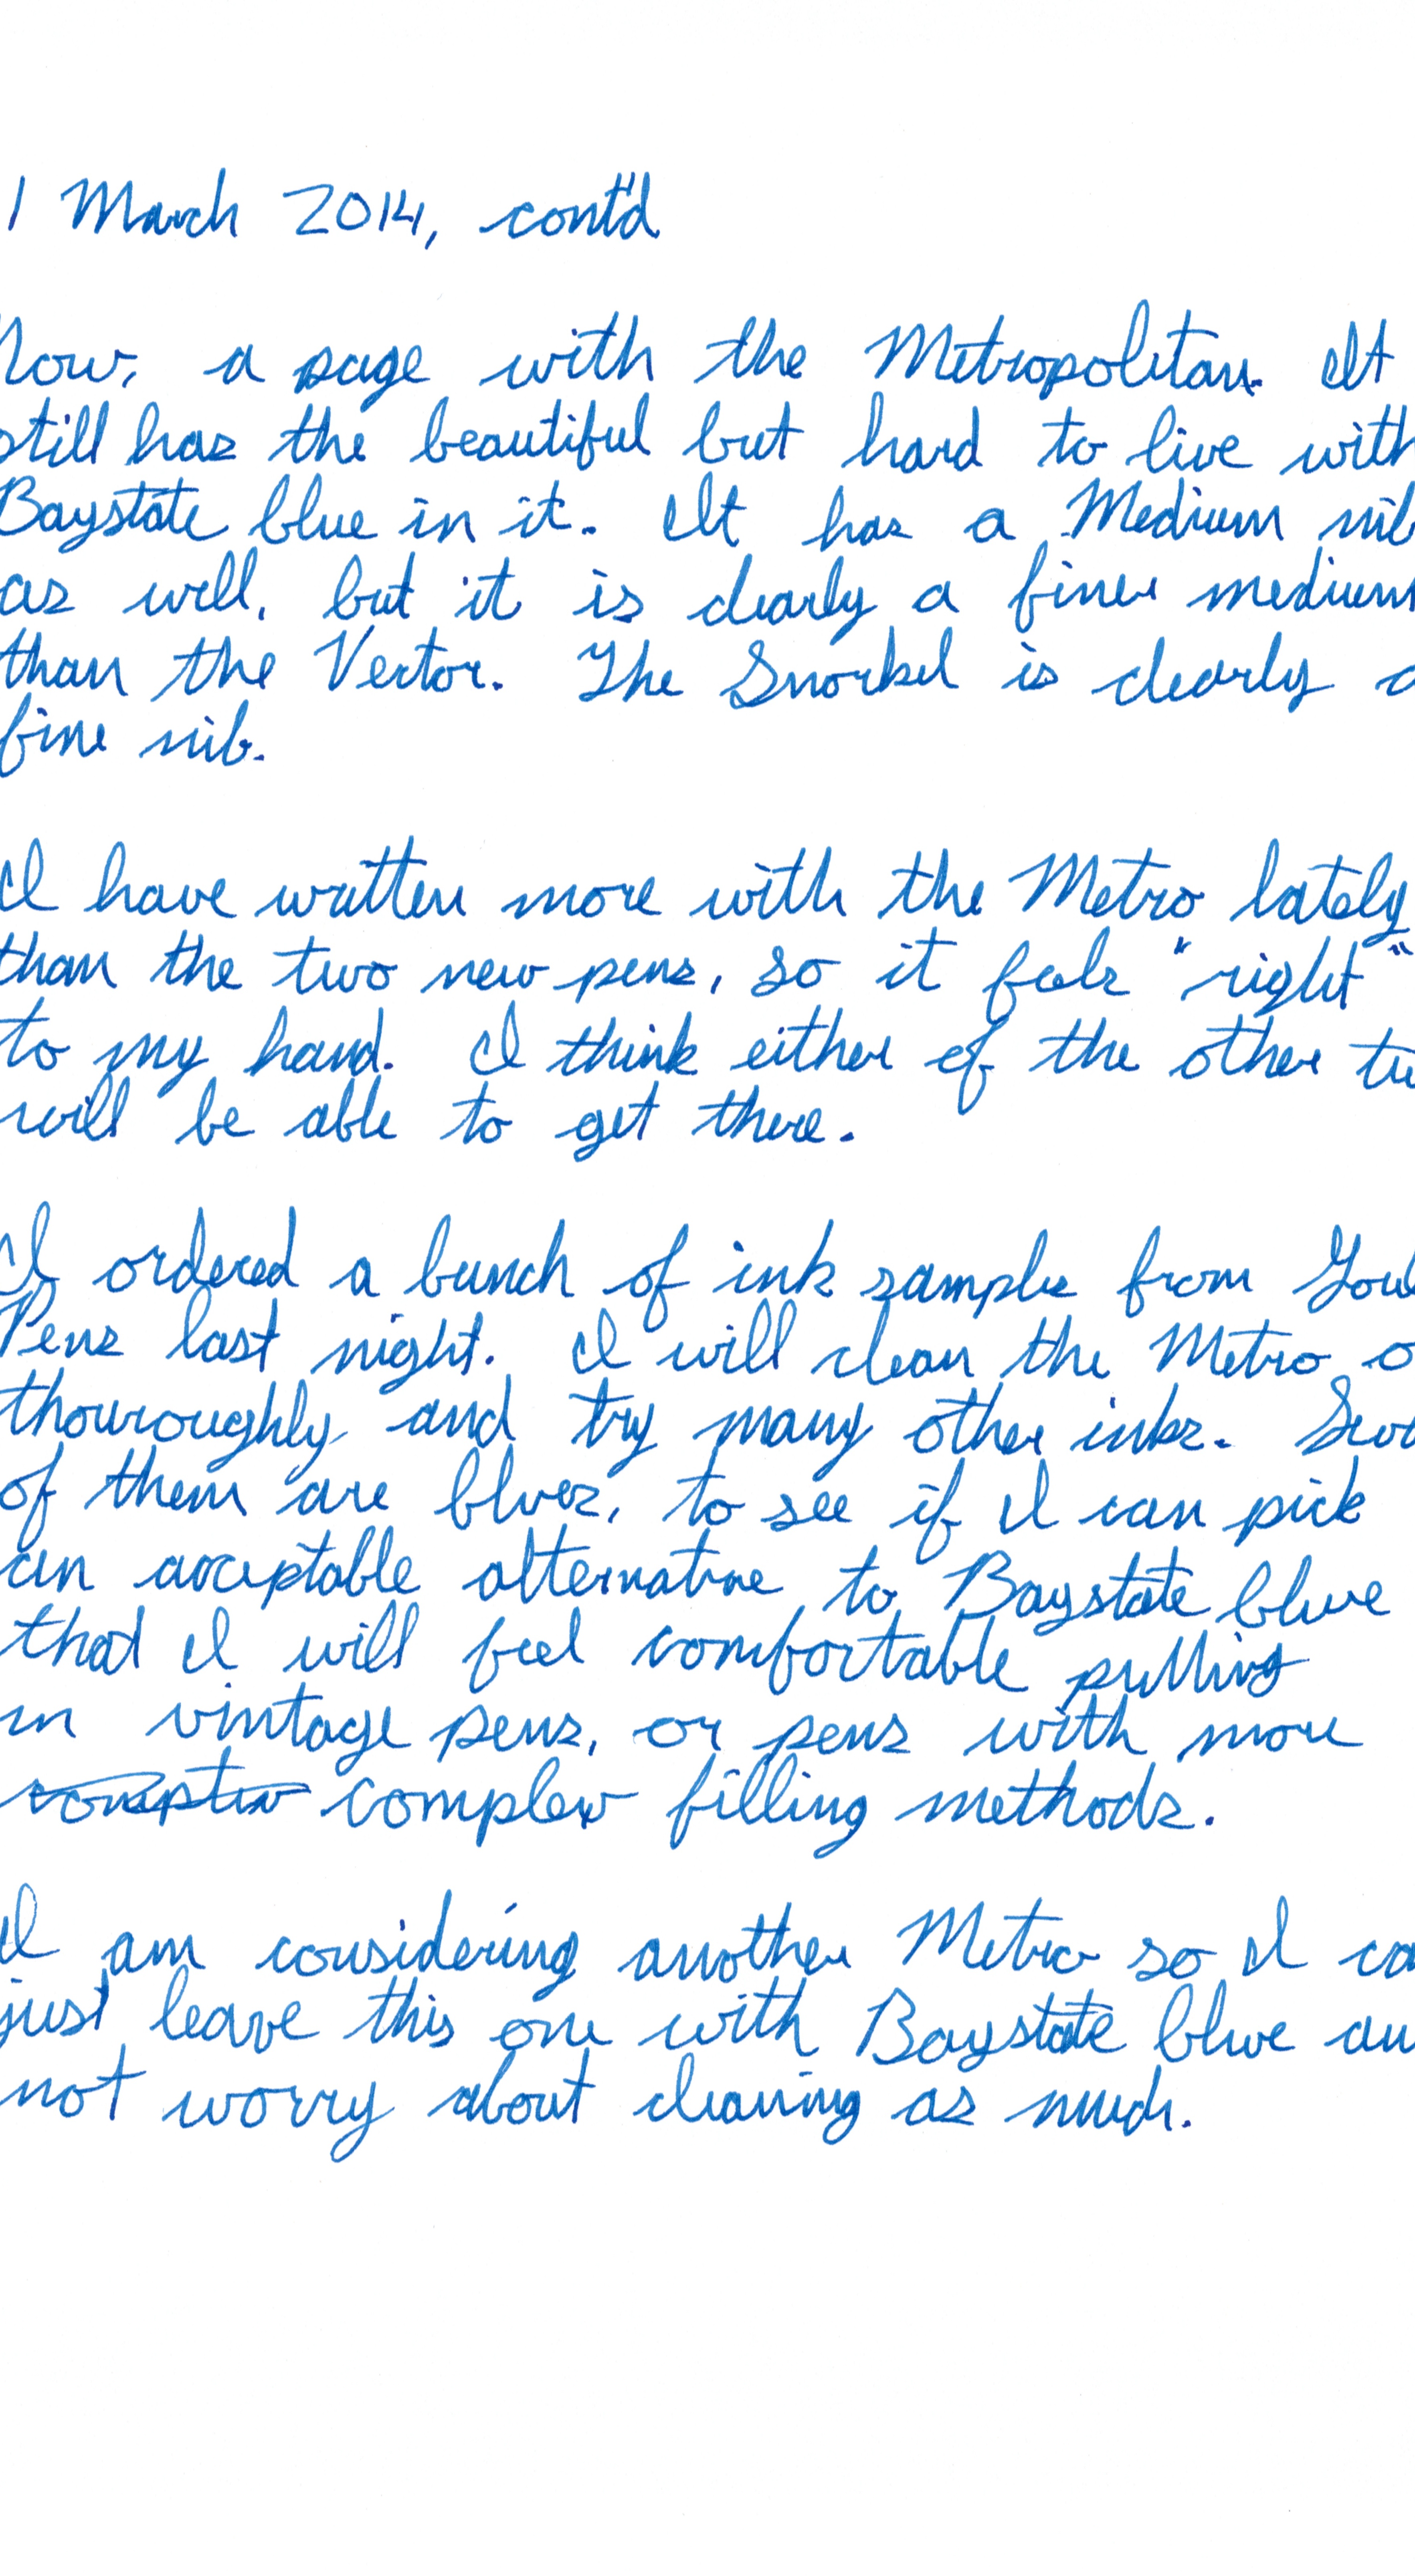 1 March 2014, cont'd
Now, a page with the Metropolitan. It
still has the beautiful but hard to live with
Baystate blue in it. It has a Medium nib
as well, but it is clearly a finer medium
than the Vector. The Snorkel is clearly a
fine nib.
I have written more with the Metro lately
than the two new pens, so it feels "right"
to my hand. I think either of the other tw
will be able to get there.
I ordered a bunch of ink samples from Goul
Pens last night. I will clean the Metro o
thouroughly and try many other inks. Seve
of them are blues, to see if I can pick
an acceptable alternative to Baystate blue
that I will feel comfortable putting
in vintage pens, or pens with more
complex filling methods.
I am considering another Metro so I ca
just leave this one with Baystate blue an
not worry about cleaning as much.